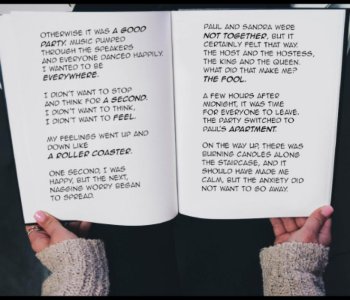 OTHERWISE IT WAS A GOOD
PARTY. MUSIC PUMPED
THROUGH THE SPEAKERS
AND EVERYONE DANCED HAPPILY.
I WANTED TO BE
EVERYWHERE.
I DIDN'T WANT TO STOP
AND THINK FOR A SECOND.
I DIDN'T WANT TO THINK,
I DIDN'T WANT TO FEEL.
MY FEELINGS WENT UP AND
DOWN LIKE
A ROLLER COASTER.
ONE SECOND, I WAS
HAPPY, BUT THE NEXT,
NAGGING WORRY BEGAN
TO SPREAD.
PAUL AND SANDRA WERE
NOT TOGETHER, BUT IT
CERTAINLY FELT THAT WAY.
THE HOST AND THE HOSTESS,
THE KING AND THE QUEEN.
WHAT DID THAT MAKE ME?
THE FOOL.
A FEW HOURS AFTER
MIDNIGHT, IT WAS TIME
FOR EVERYONE TO LEAVE.
THE PARTY SWITCHED TO
PAUL'S APARTMENT.
ON THE WAY UP, THERE WAS
BURNING CANDLES ALONG
THE STAIRCASE, AND IT
SHOULD HAVE MADE ME
CALM, BUT THE ANXIETY DID
NOT WANT TO GO AWAY.